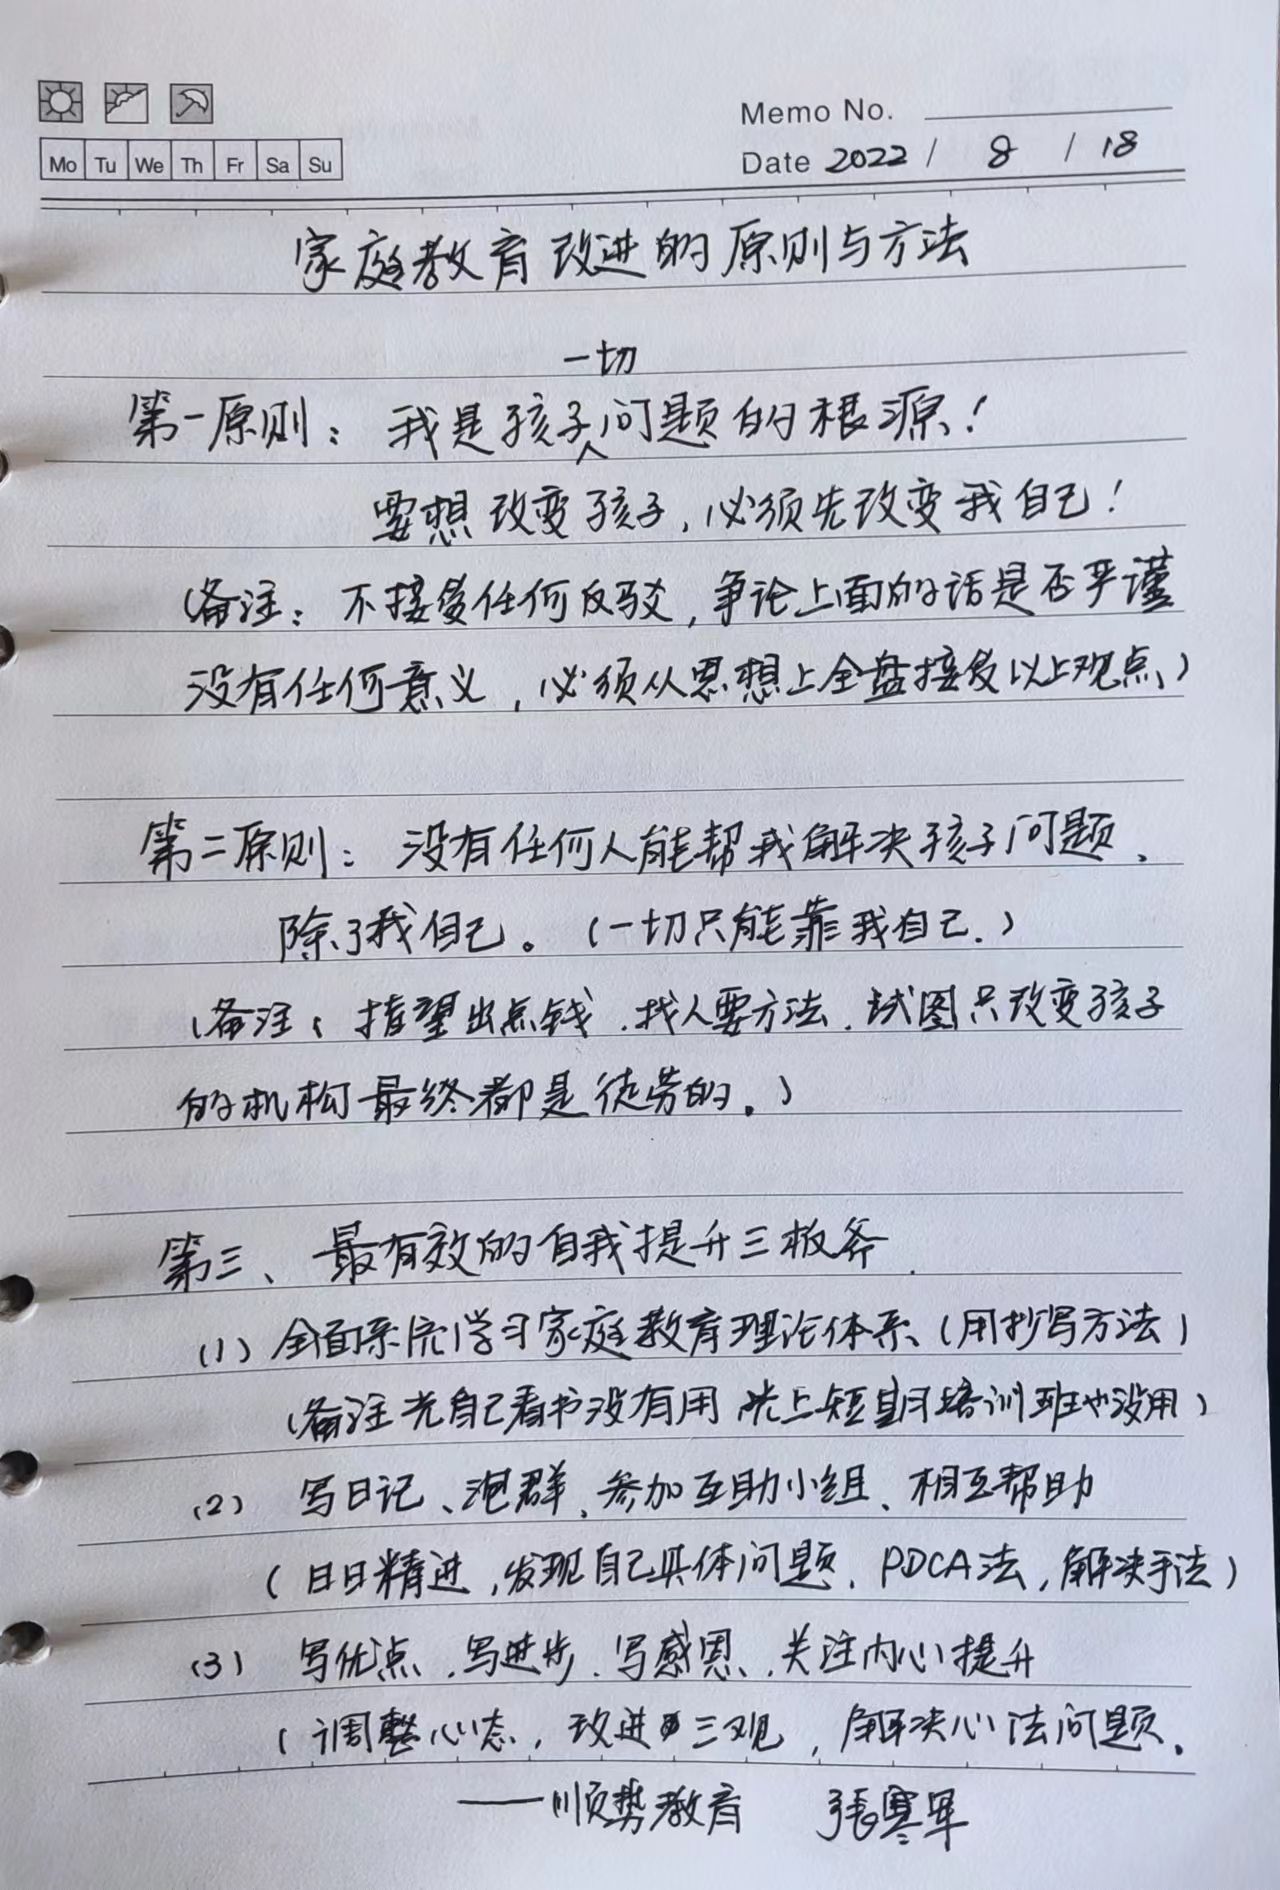 Memo No.
Mo Tu We Th Fr Sa Su
Date 2022 / 8 / 18
家庭教育改进的原则与方法
一切
第一原则：我是孩子问题的根源！
要想改变孩子，必须先改变我自己！
（备注：不接受任何反驳，争论上面的话是否严谨
没有任何意义，必须从思想上全盘接受以上观点）
第二原则：没有任何人能帮我解决孩子问题、
除了我自己。（一切只能靠我自己.）
（备注：指望出点钱、找人要方法、试图只改变孩子
的机构最终都是徒劳的。）
第三、最有效的自我提升三板斧.
（1）全面系统学习家庭教育理论体系、（用抄写方法）
（备注光自己看书没有用 光上短期培训班也没用）
（2） 写日记、泡群、参加互助小组、相互帮助
（日日精进，发现自己具体问题、PDCA法，解决手法）
（3） 写优点、写进步、写感恩、关注内心提升
（调整心态，改进三观，解决心法问题。
——顺势教育 張寒军